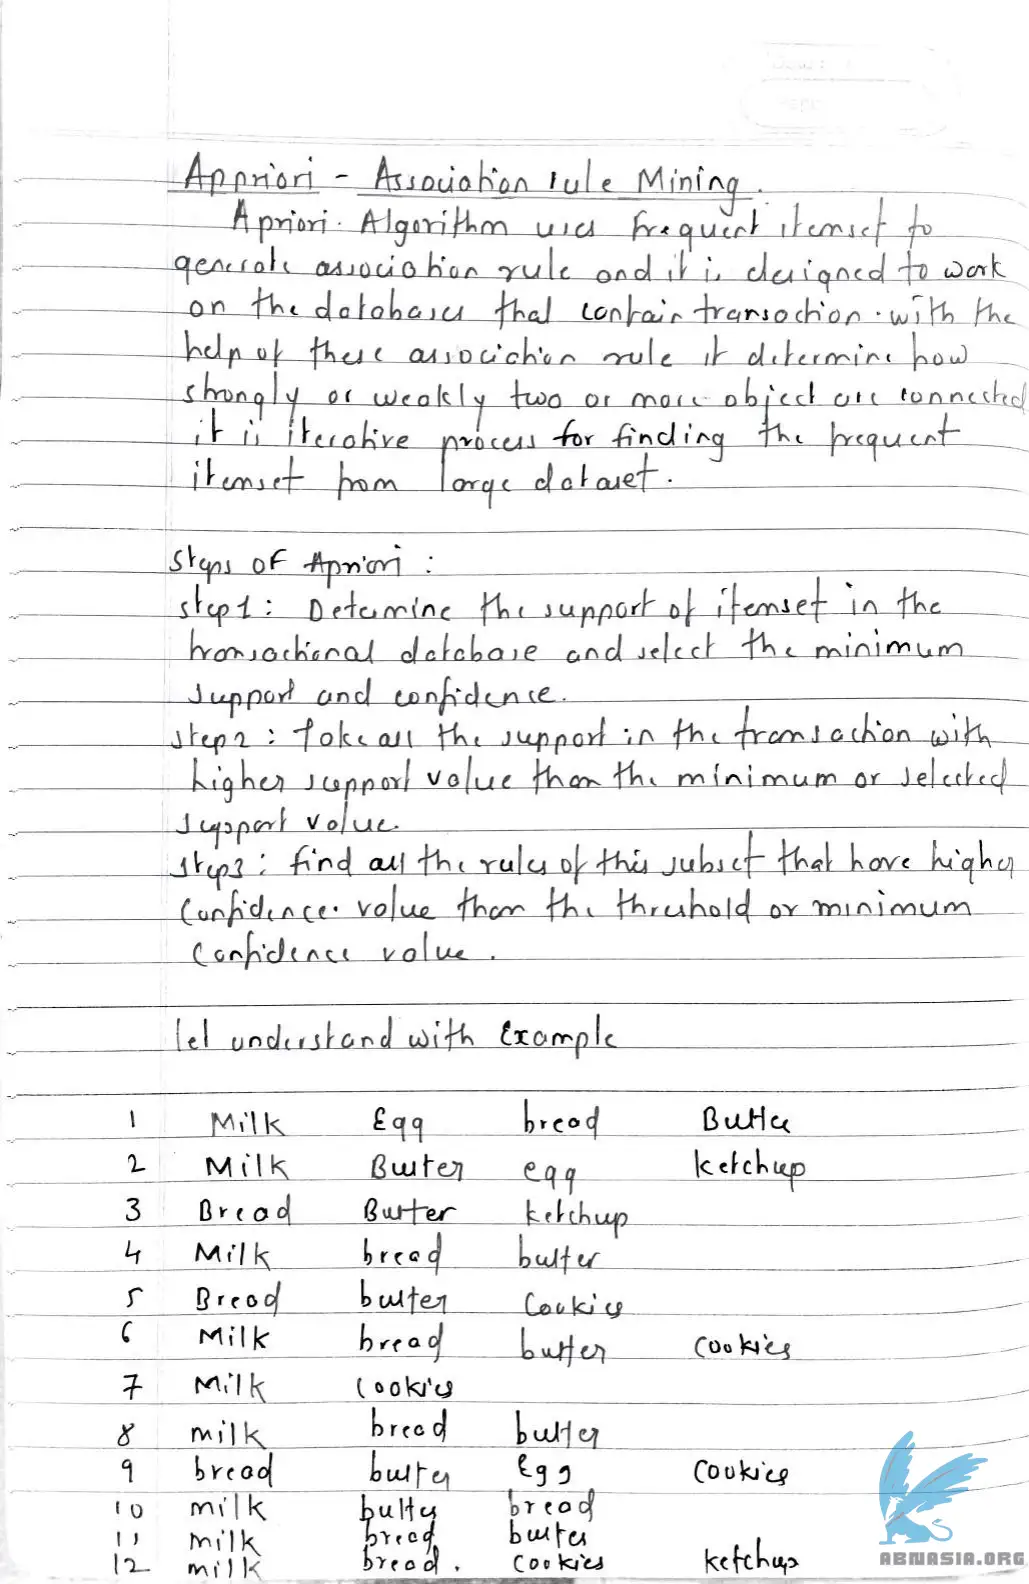 Appriori - Association rule Mining.
Apriori Algorithm uses frequent itemset to
generate association rule and it is designed to work
on the databases that contain transaction. with the
help of these association rule it determine how
strongly or weakly two or more object are connected
it is iterative process for finding the frequent
itemset from large dataset.
Steps of Apriori :
step1 : Determine the support of itemset in the
transactional database and select the minimum
support and confidence.
step2 : Take all the support in the transaction with
higher support value than the minimum or selected
support value.
step3 : find all the rules of this subset that have higher
confidence value than the threshold or minimum
confidence value.
let understand with Example
1 Milk Egg bread Butter
2 Milk Butter egg ketchup
3 Bread Butter ketchup
4 Milk bread butter
5 Bread butter Cookies
6 Milk bread butter cookies
7 Milk cookies
8 milk bread butter
9 bread butter Egg Cookies
10 milk butter bread
11 milk bread butter
12 milk bread. cookies ketchup
ABNASIA.ORG